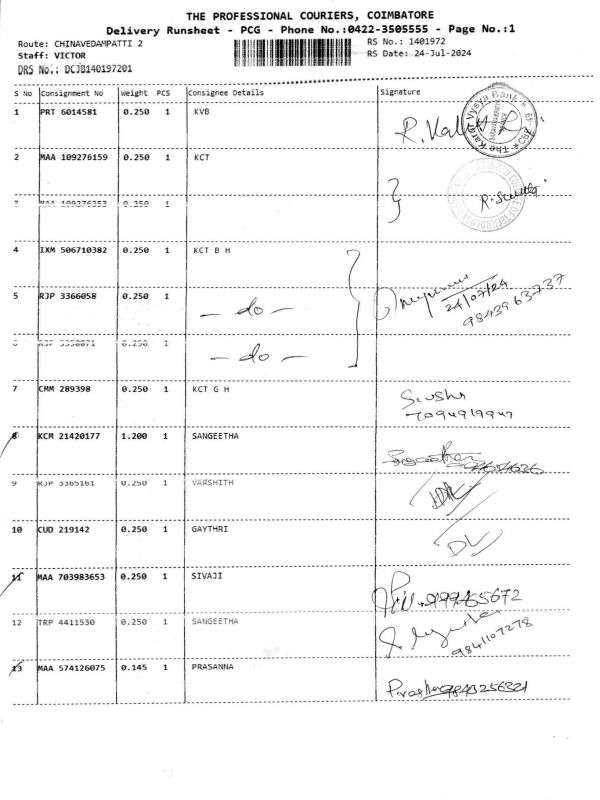 THE PROFESSIONAL COURIERS, COIMBATORE
Delivery Runsheet - PCG - Phone No.:0422-3505555 - Page No.:1
Route: CHINAVEDAMPATTI 2 RS No.: 1401972
Staff: VICTOR RS Date: 24-Jul-2024
DRS No.: DCJB140197201
S No Consignment No Weight PCS Consignee Details Signature
1 PRT 6014581 0.250 1 KVB
The Karur Vysya Bank
2 MAA 109276159 0.250 1 KCT
3 MAA 109276353 0.250 1
4 IXM 506710382 0.250 1 KCT B H
24/07/24
9843963737
5 RJP 3366058 0.250 1 - do -
6 RJP 3350871 0.250 1 - do -
7 CMM 289398 0.250 1 KCT G H
7094919947
8 KCM 21420177 1.200 1 SANGEETHA
9 RJP 3365161 0.250 1 VARSHITH
10 CUD 219142 0.250 1 GAYTHRI
DL
11 MAA 703983653 0.250 1 SIVAJI
12 TRP 4411530 0.250 1 SANGEETHA
9841107278
13 MAA 574126075 0.145 1 PRASANNA
9843256321